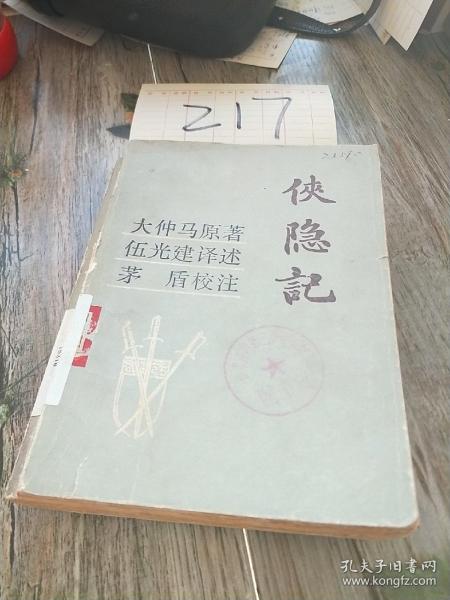 217
侠隐記
大仲马原著
伍光建译述
茅盾校注
孔夫子旧书网
www.kongfz.com